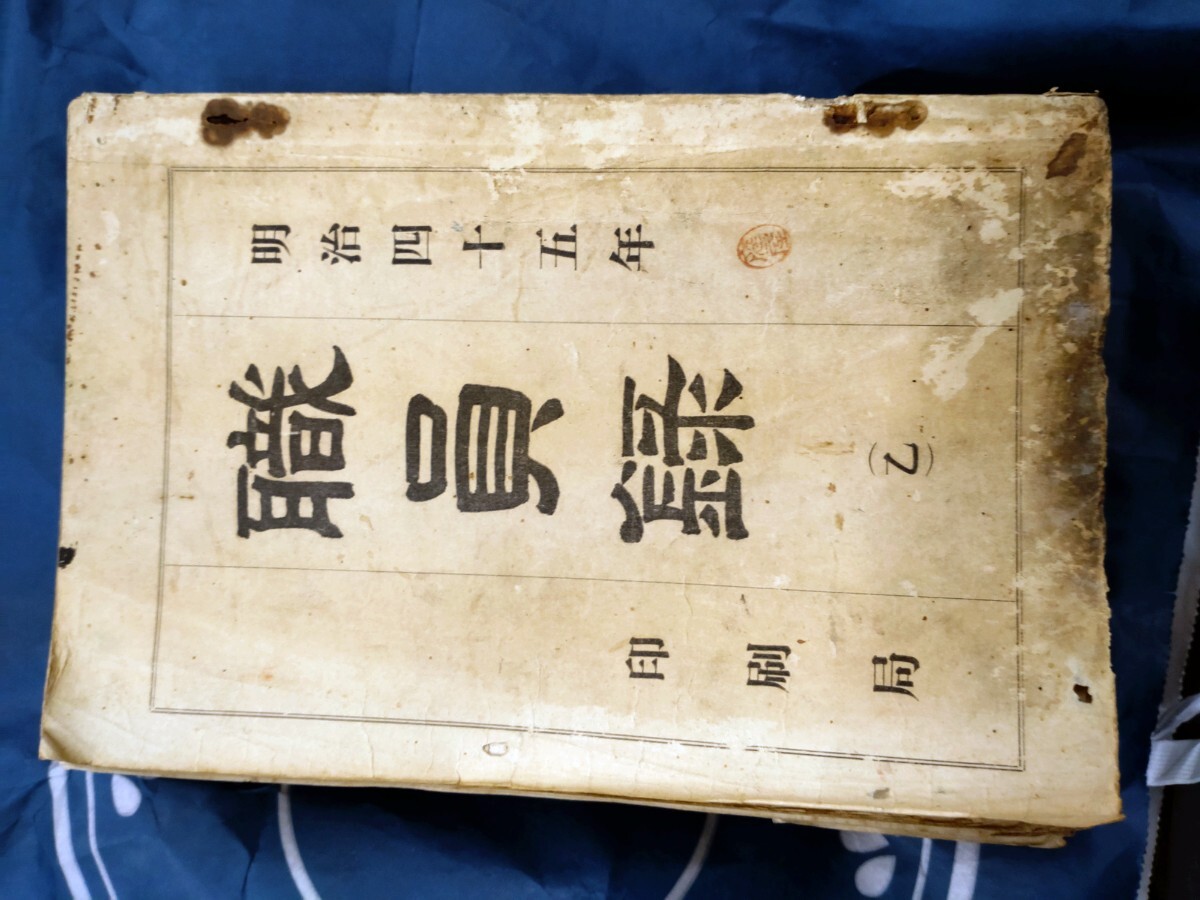 明治四十五年
職員錄
（乙）
印刷局